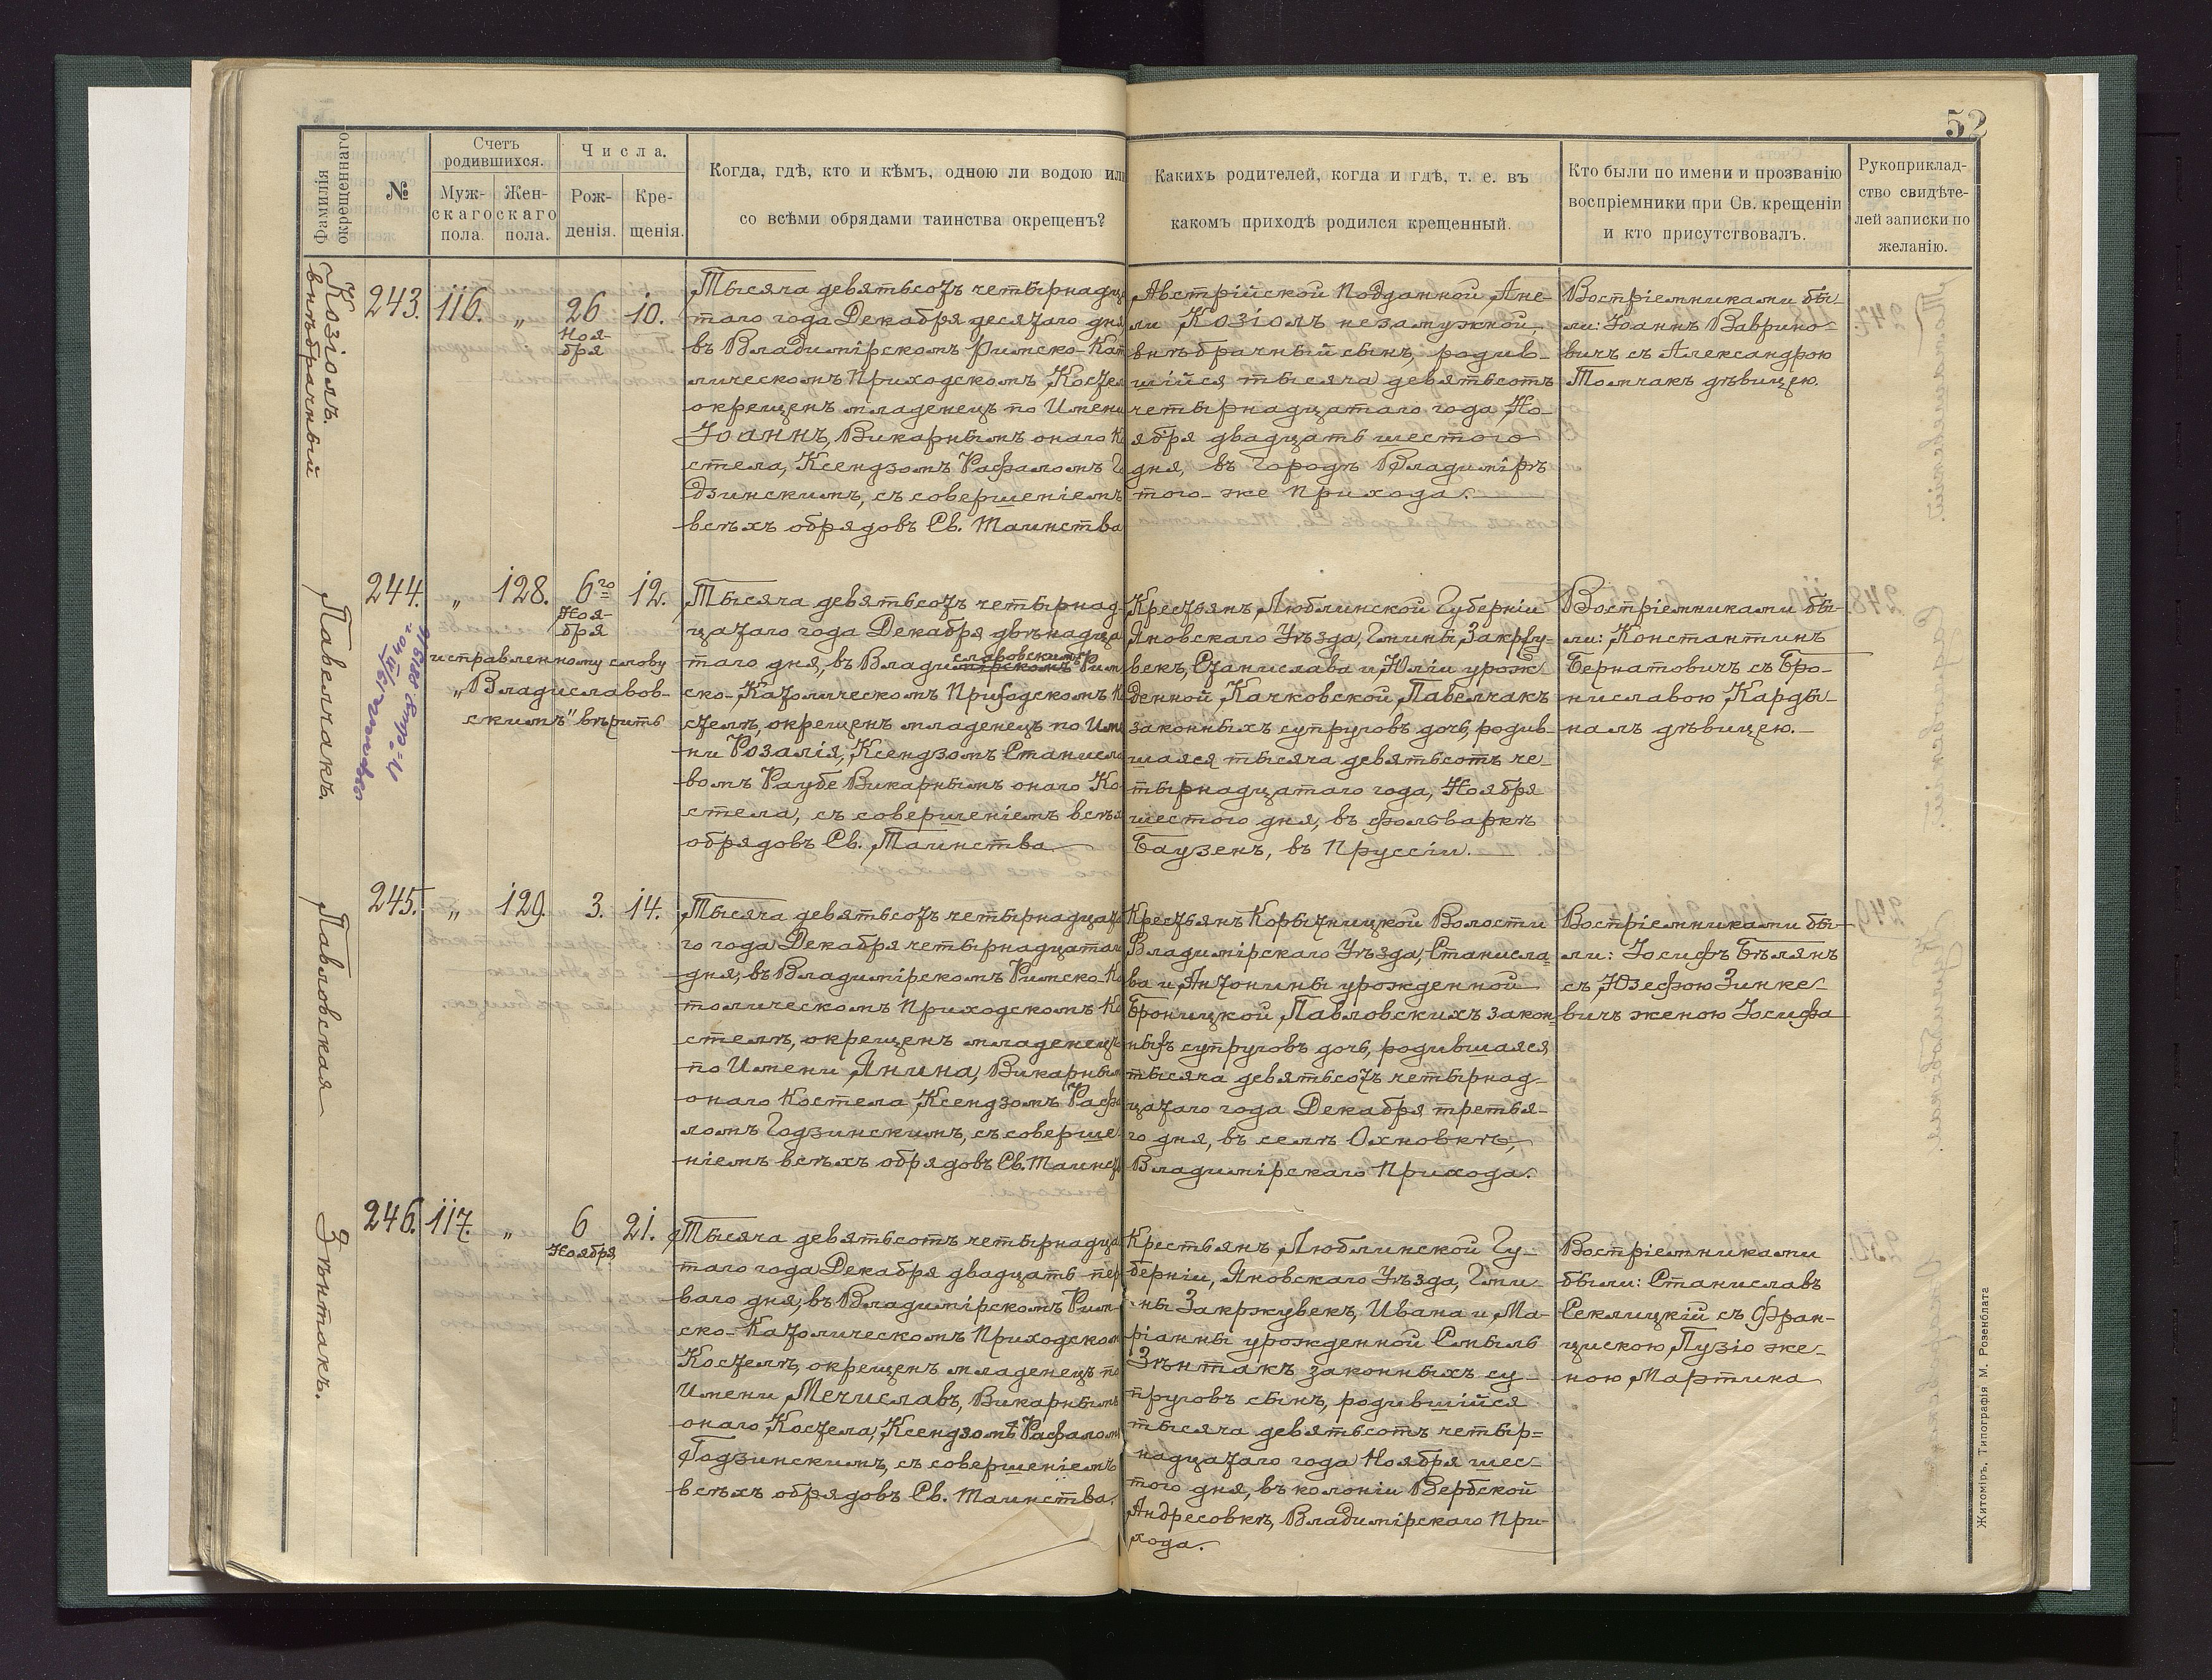 52
Фамилія
окрещеннаго
№
Счетъ
родившихся.
Муж-
скаго
пола.
Жен-
скаго
пола.
Числа.
Рож-
денія.
Кре-
щенія.
Когда, гдѣ, кто и кѣмъ, одною ли водою или
со всѣми обрядами таинства окрещенъ?
Какихъ родителей, когда и гдѣ, т. е. въ
какомъ приходѣ родился крещенный.
Кто были по имени и прозванію
воспріемники при Св. крещеніи
и кто присутствовалъ.
Рукоприклад-
ство свидѣте-
лей записки по
желанію.
Козіолъ.
внѣбрачный
243.
116.
„
26
Ноя-
бря
10.
Тысяча девятьсотъ четырнадца
таго года Декабря десятаго дня,
въ Владимірскомъ Римско-Кат
лическомъ Приходскомъ Костел
окрещенъ младенецъ по Имени
Іоаннъ, Викарнымъ онаго Ко
стела, Ксендзомъ Рафаломъ Го
дзинскимъ, съ совершеніемъ
всѣхъ обрядовъ Св. Таинства
Австрійской Подданной Ане-
ли Козіолъ незамужной,
внѣбрачный сынъ, родив-
шійся тысяча девятьсотъ
четырнадцатаго года Но-
ября двадцать шестого
дня, въ городѣ Владимірѣ
того-же Прихода.
Воспріемниками бы-
ли: Іоаннъ Ваврино-
вичъ съ Александрою
Томчакъ дѣвицею.
Павелчакъ.
244.
„
128.
6го
Ноя-
бря
12.
исправленному слову
„Владиславов-
скимъ" вѣрить
Тысяча девятьсотъ четырнад-
цатаго года Декабря двѣнадца
таго дня, въ Владимірскомъ Рим
славовскимъ
ско-Католическомъ Приходскомъ К
стелѣ, окрещенъ младенецъ по Име
ни Розалія, Ксендзомъ Станисла
вомъ Раубе Викарнымъ онаго Ко-
стела, съ совершеніемъ всѣхъ
обрядовъ Св. Таинства
Крестьянъ Люблинской Губерніи
Яновскаго Уѣзда, Гмины Закржу-
векъ, Станислава и Юліи урож-
денной Качковской Павелчакъ
законныхъ супруговъ дочь, родив-
шаяся тысяча девятьсотъ че-
тырнадцатаго года, Ноября
шестого дня, въ фольваркѣ
Баузенъ, въ Пруссіи.
Воспріемниками бы-
ли: Константинъ
Бернатовичъ съ Бро-
ниславою Карды-
налъ дѣвицею.
Павловская
245.
„
129.
3.
14.
Тысяча девятьсотъ четырнадцата
го года Декабря четырнадцатаго
дня, въ Владимірскомъ Римско-Ка
толическомъ Приходскомъ Ко
стелѣ, окрещенъ младенецъ
по Имени Янина, Викарным
онаго Костела Ксендзомъ Рафа
ломъ Годзинскимъ, съ соверше
ніемъ всѣхъ обрядовъ Св. Таинст
Крестьянъ Корытницкой Волости
Владимірскаго Уѣзда, Станисла-
ва и Антонины урожденной
Броницкой, Павловскихъ закон-
ныхъ супруговъ дочь, родившаяся
тысяча девятьсотъ четырнад-
цатаго года Декабря третья-
го дня, въ селѣ Охновкѣ,
Владимірскаго Прихода.
Воспріемниками бы-
ли: Іосифъ Бѣлянъ
съ Юзефою Зинке-
вичъ женою Іосифа
Зѣнтакъ.
246.
117.
„
6
Ноября
21.
Тысяча девятьсотъ четырнадца
таго года Декабря двадцать пер
ваго дня, въ Владимірскомъ Рим-
ско-Католическомъ Приходском
Костелѣ, окрещенъ младенецъ по
Имени Мечиславъ, Викарнымъ
онаго Костела, Ксендзомъ Рафаломъ
Годзинскимъ, съ совершеніемъ
всѣхъ обрядовъ Св. Таинства.
Крестьянъ, Люблинской Гу-
берніи, Яновскаго Уѣзда, Гми-
ны Закржувекъ, Ивана и Ма-
ріанны урожденной Смыль
Зѣнтакъ законныхъ су-
пруговъ сынъ, родившійся
тысяча девятьсотъ четыр-
надцатаго года Ноября шес-
того дня, въ колоніи Вербской
Андресовкѣ, Владимірскаго При-
хода.
Воспріемниками
были: Станиславъ
Секлицкій съ Фран-
цискою Пузіо же-
ною Мартина
Житоміръ, Типографія М. Розенблата